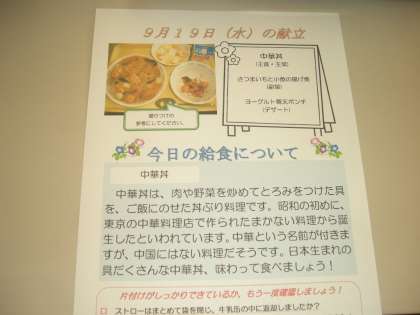 9月19日(水)の献立
中華丼
(主食・主菜)
さつまいもと小魚の揚げ煮
(副菜)
ヨーグルト寒天ポンチ
(デザート)
盛りつけの
参考にしてください。
今日の給食について
中華丼
中華丼は、肉や野菜を炒めてとろみをつけた具
を、ご飯にのせた丼ぶり料理です。昭和の初めに、
東京の中華料理店で作られたまかない料理から誕
生したといわれています。中華という名前が付きま
すが、中国にはない料理だそうです。日本生まれの
具だくさんな中華丼、味わって食べましょう！
片付けがしっかりできているか、もう一度確認しましょう！
□ ストローはまとめて袋を閉じ、牛乳缶の中に返却しましたか？